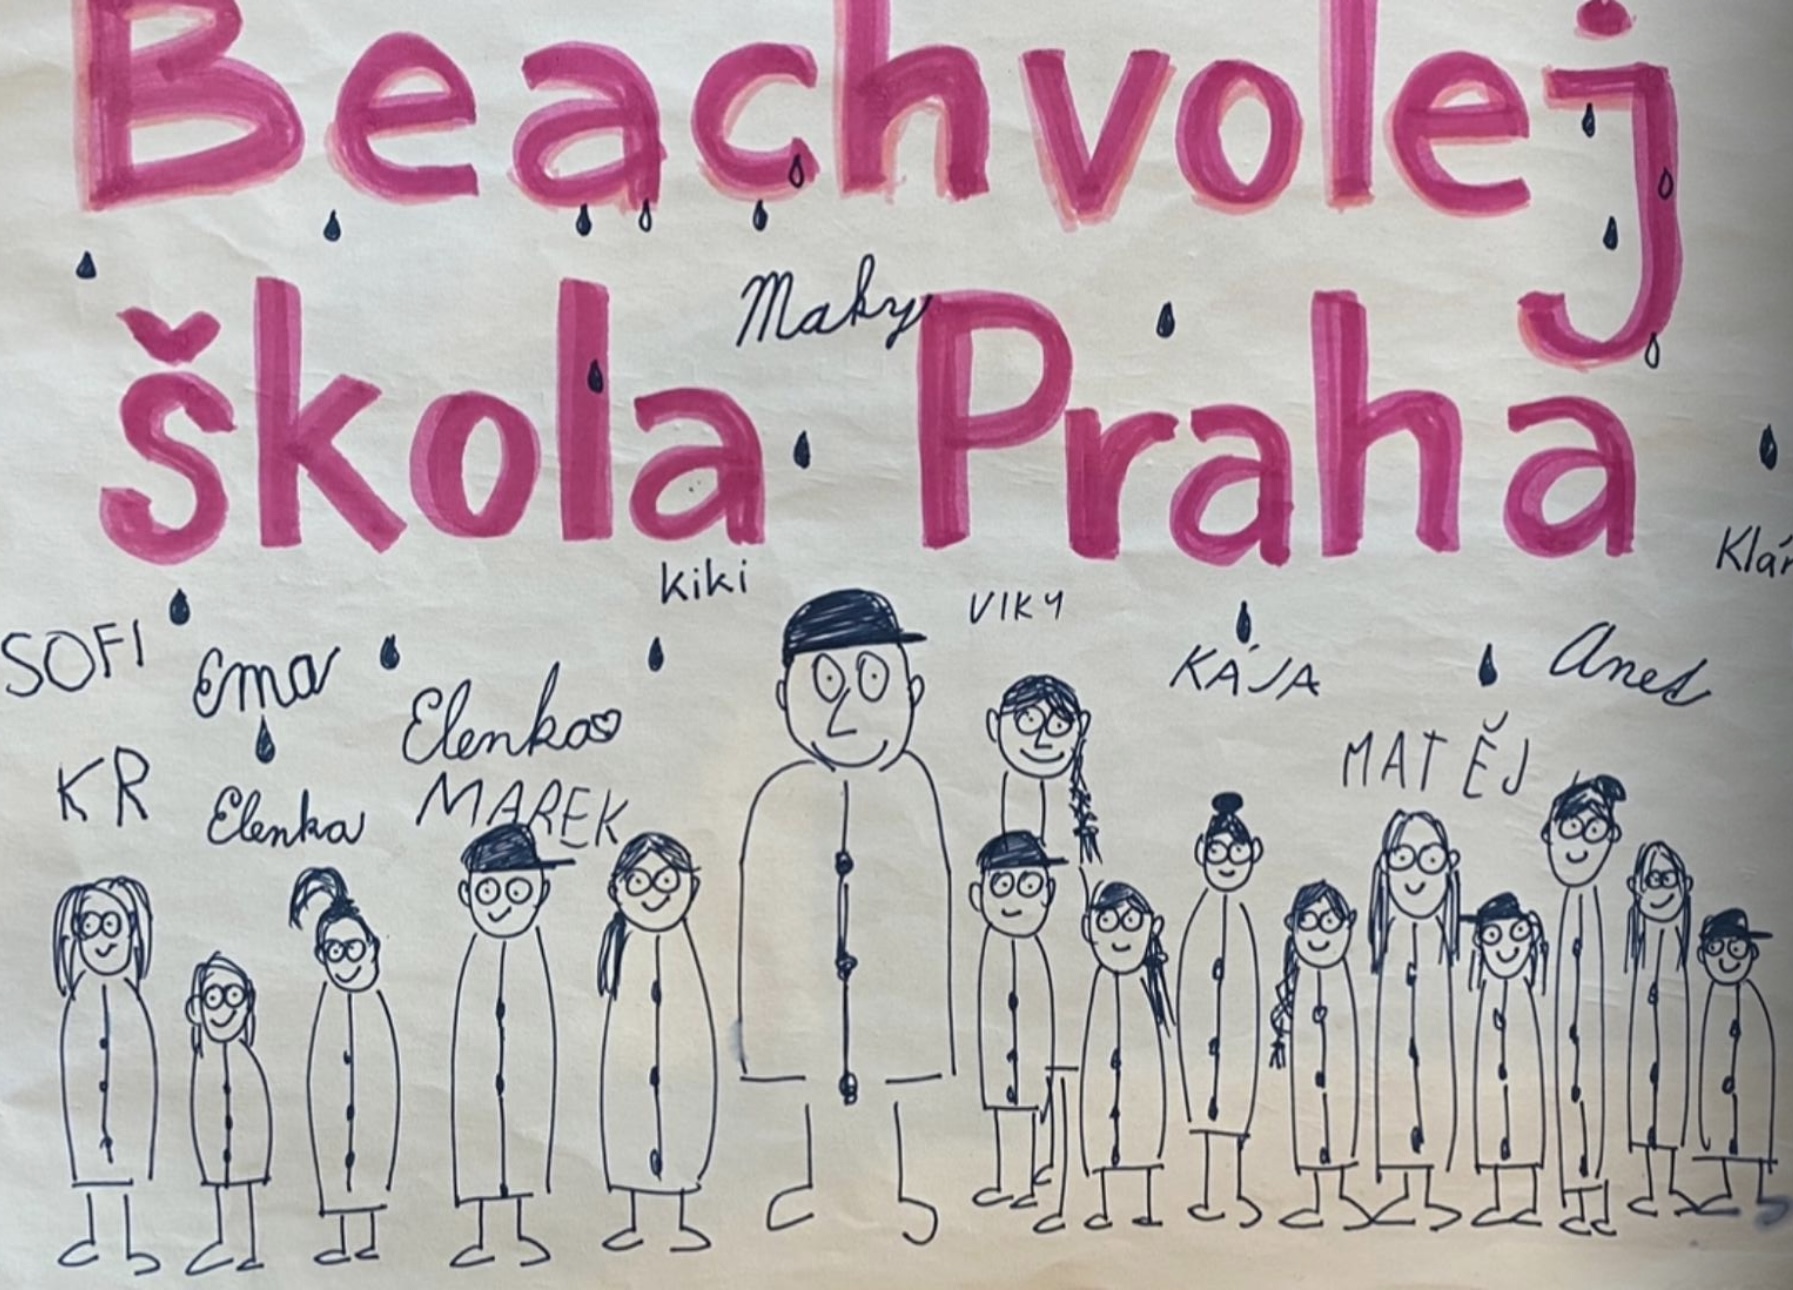 Beachvolej
Maky
škola Praha
kiki
VIKY
SOFI
Ema
Elenka
KÁJA
Anet
KR
Elenka
MAREK
MATĚJ